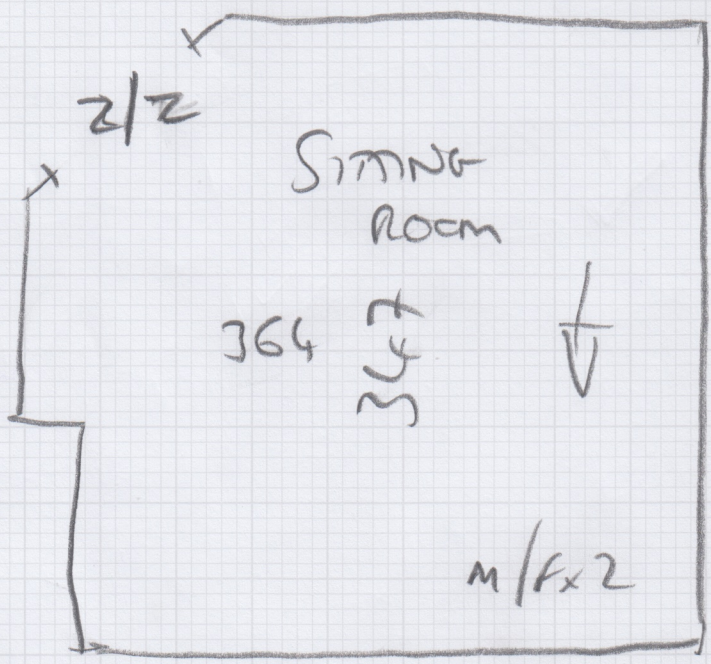 Z/Z
SITTING
ROOM
364
347
M/Fx2